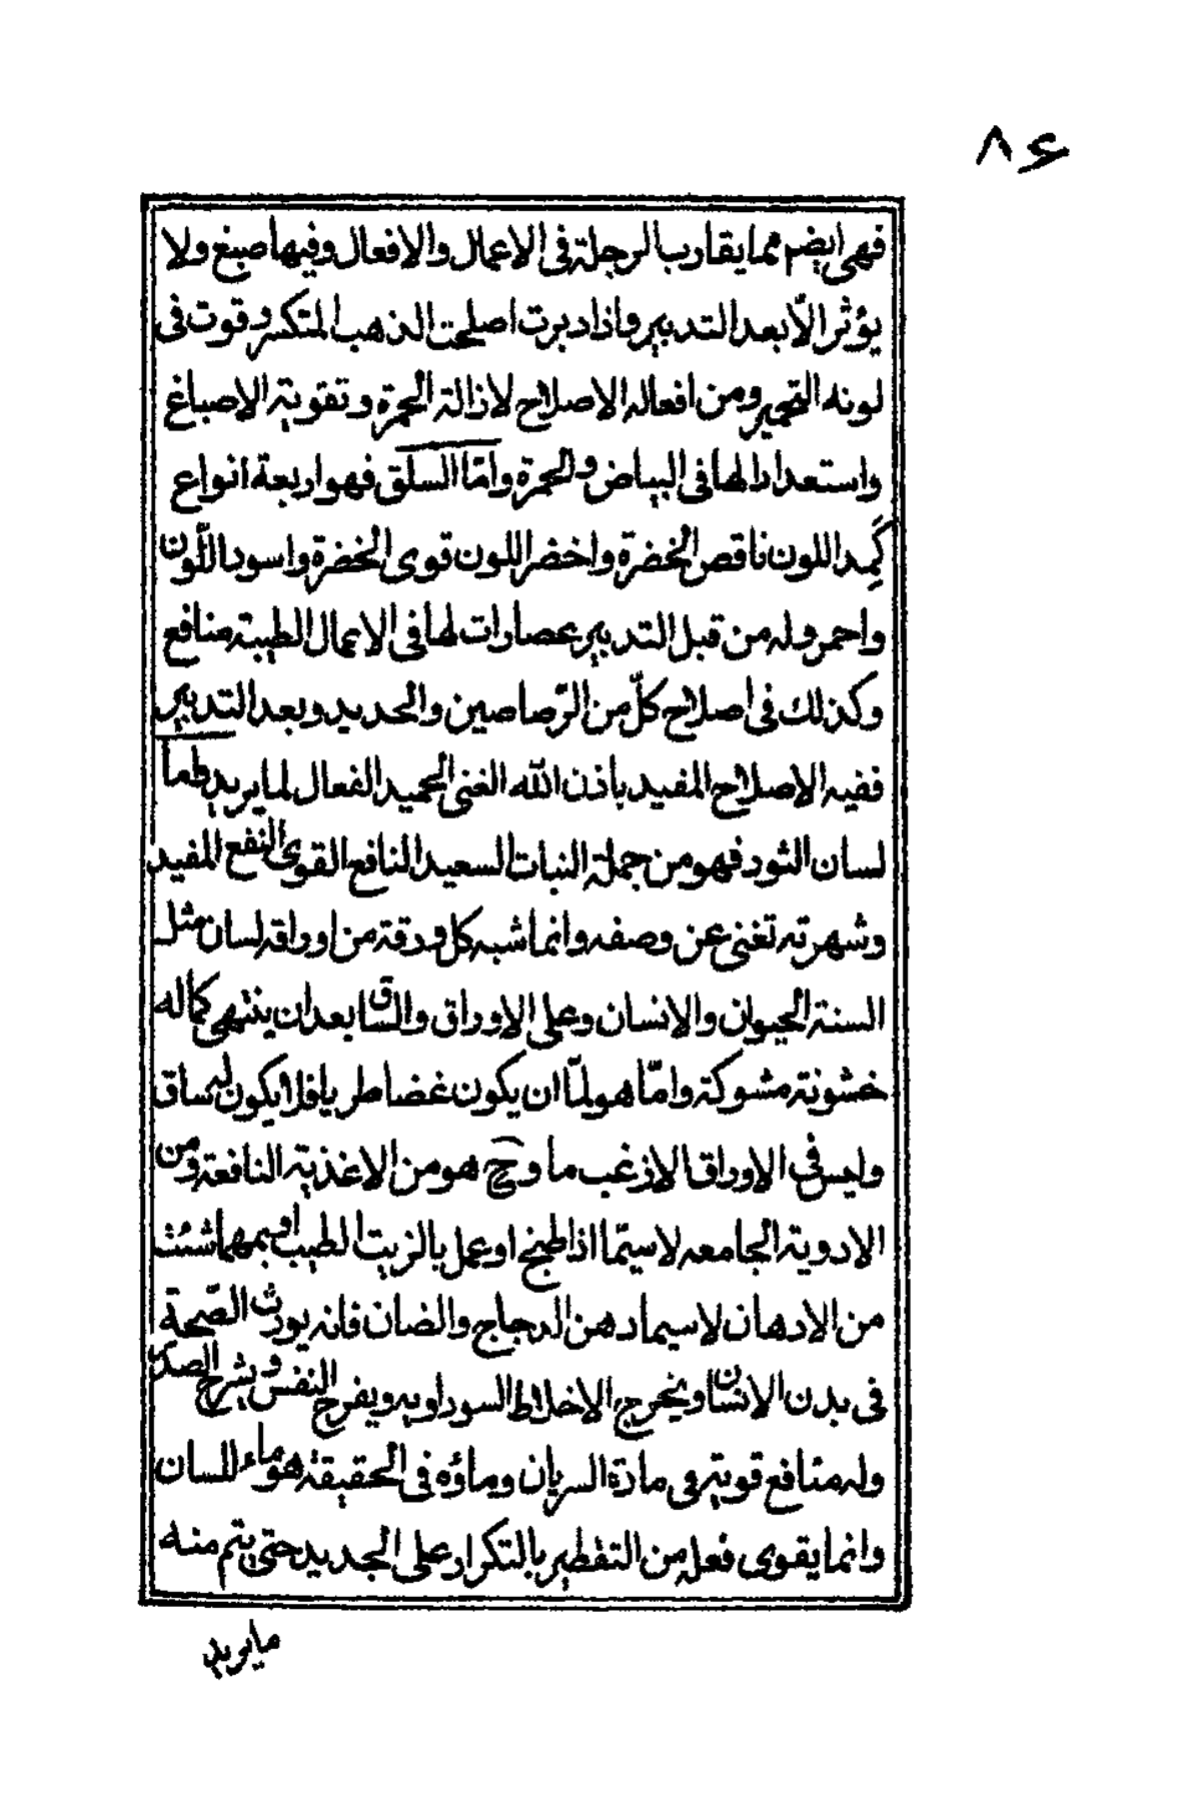 ٨٤
فهى ايضم مما يقارب الرجلة فى الاعمال والافعال وفيها صبغ ولا
يؤثر الّا بعد التدبير واذا دبرت اصلحت الذهب المتكسر وقوت فى
لونه التحمير ومن افعاله الاصلاح لازالة الحمرة وتقوية الاصباغ
واستعداد الها فى البياض والحمرة وامّا السلق فهو اربعة انواع
كَمِد اللون ناقص الخضرة واخضر اللون قوى الخضرة واسود اللّون
واحمر وله من قبل التدبير عصارات لها فى الاعمال الطبية منافع
وكذلك فى اصلاح كلّ من الرّصاصين والحديد وبعد التدبير
ففيه الاصلاح المفيد باذن الله الغنى الحميد الفعال لما يريد واما
لسان الثور فهو من جملة النبات السعيد النافع القوى النفع المفيد
وشهرته تغنى عن وصفه وانما شبه كل ورقة من اوراقه لسان مثل
السنة الحيوان والانسان وعلى الاوراق والساق بعد ان ينتهى كماله
خشونة مشوكة وامّا هو لمّا ان يكون غضا طريا فلا يكون له ساق
وليس فى الاوراق الازغب ما وحٓ هو من الاغذية النافعة ومن
الادوية الجامعه لاسيّما اذا طبخ او عمل بالزيت الطيب او بمهما شئت
من الادهان لاسيما دهن الدجاج والضان فانه يورث الصّحة
فى بدن الانسان ويخرج الاخلاط السوداويه ويفرح النفس ويشرح الصدر
وله منافع قوية فى مادّة السريان وماؤه فى الحقيقة هو ماء اللسان
وانما يقوى فعله من التقطير بالتكرار على الجديد حتى يتم منه
ما يريد